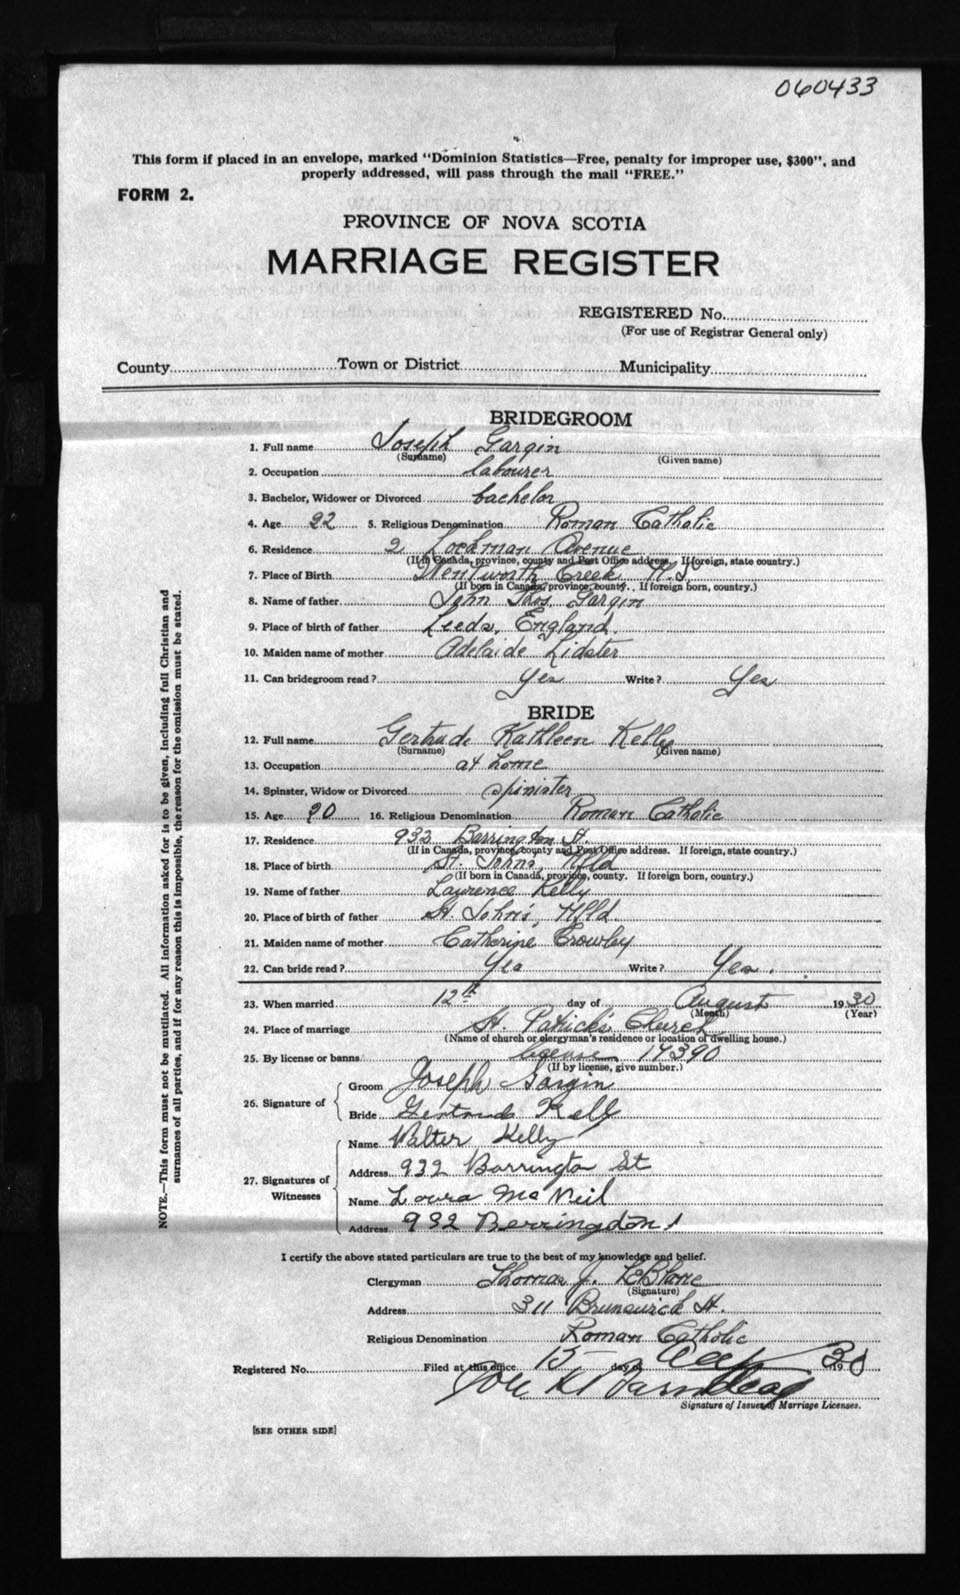 060433
This form if placed in an envelope, marked "Dominion Statistics—Free, penalty for improper use, $300", and
properly addressed, will pass through the mail "FREE."
FORM 2.
PROVINCE OF NOVA SCOTIA
MARRIAGE REGISTER
REGISTERED No.
(For use of Registrar General only)
County Town or District Municipality
BRIDEGROOM
1. Full name Joseph Gargin
(Surname) (Given name)
2. Occupation labourer
3. Bachelor, Widower or Divorced bachelor
4. Age 22 5. Religious Denomination Roman Catholic
6. Residence 2 Lockman Avenue
(If in Canada, province, county and Post Office address. If foreign, state country.)
7. Place of Birth Wentworth Creek N.S
(If born in Canada, province, county. If foreign born, country.)
8. Name of father John Thos. Gargin
9. Place of birth of father Leeds, England.
10. Maiden name of mother Adelaide Lidster
11. Can bridegroom read? Yes Write? Yes
BRIDE
12. Full name Gertrude Kathleen Kelly
(Surname) (Given name)
13. Occupation at home
14. Spinster, Widow or Divorced spinister
15. Age 20 16. Religious Denomination Roman Catholic
17. Residence 932 Barrington St.
(If in Canada, province, county and Post Office address. If foreign, state country.)
18. Place of birth St. Johns, Nfld
(If born in Canada, province, county. If foreign born, country.)
19. Name of father Lawrence Kelly
20. Place of birth of father St. John's, Nfld.
21. Maiden name of mother Catherine Crowley
22. Can bride read? Yes Write? Yes.
23. When married 12th day of August 1930
(Month) (Year)
24. Place of marriage St. Patrick's Church
(Name of church or clergyman's residence or location of dwelling house.)
25. By license or banns license 17390
(If by license, give number.)
26. Signature of
Groom Joseph Gargin
Bride Gertrude Kelly
27. Signatures of Witnesses
Name Walter Kelly
Address 932 Barrington St
Name Loura McNeil
Address 932 Berringdon
I certify the above stated particulars are true to the best of my knowledge and belief.
Clergyman Thomas J. LeBlanc
(Signature)
Address 311 Brunswick St.
Religious Denomination Roman Catholic
Registered No. Filed at this office 15 day of 1930
Signature of Issuer of Marriage Licenses.
[SEE OTHER SIDE]
NOTE.—This form must not be mutilated. All information asked for is to be given, including full Christian and
surnames of all parties, and if for any reason this is impossible, the reason for the omission must be stated.